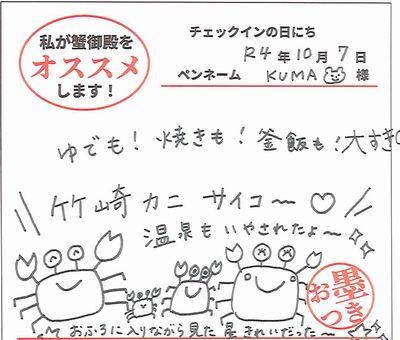 私が蟹御殿を
オススメ
します！
チェックインの日にち
R4年10月7日
ペンネーム KUMA 様
ゆでも！焼きも！釜飯も！大すき♡
竹崎カニ サイコ〜♡
温泉もいやされたよ〜
墨
おつき
おふろに入りながら見た星きれいだった〜